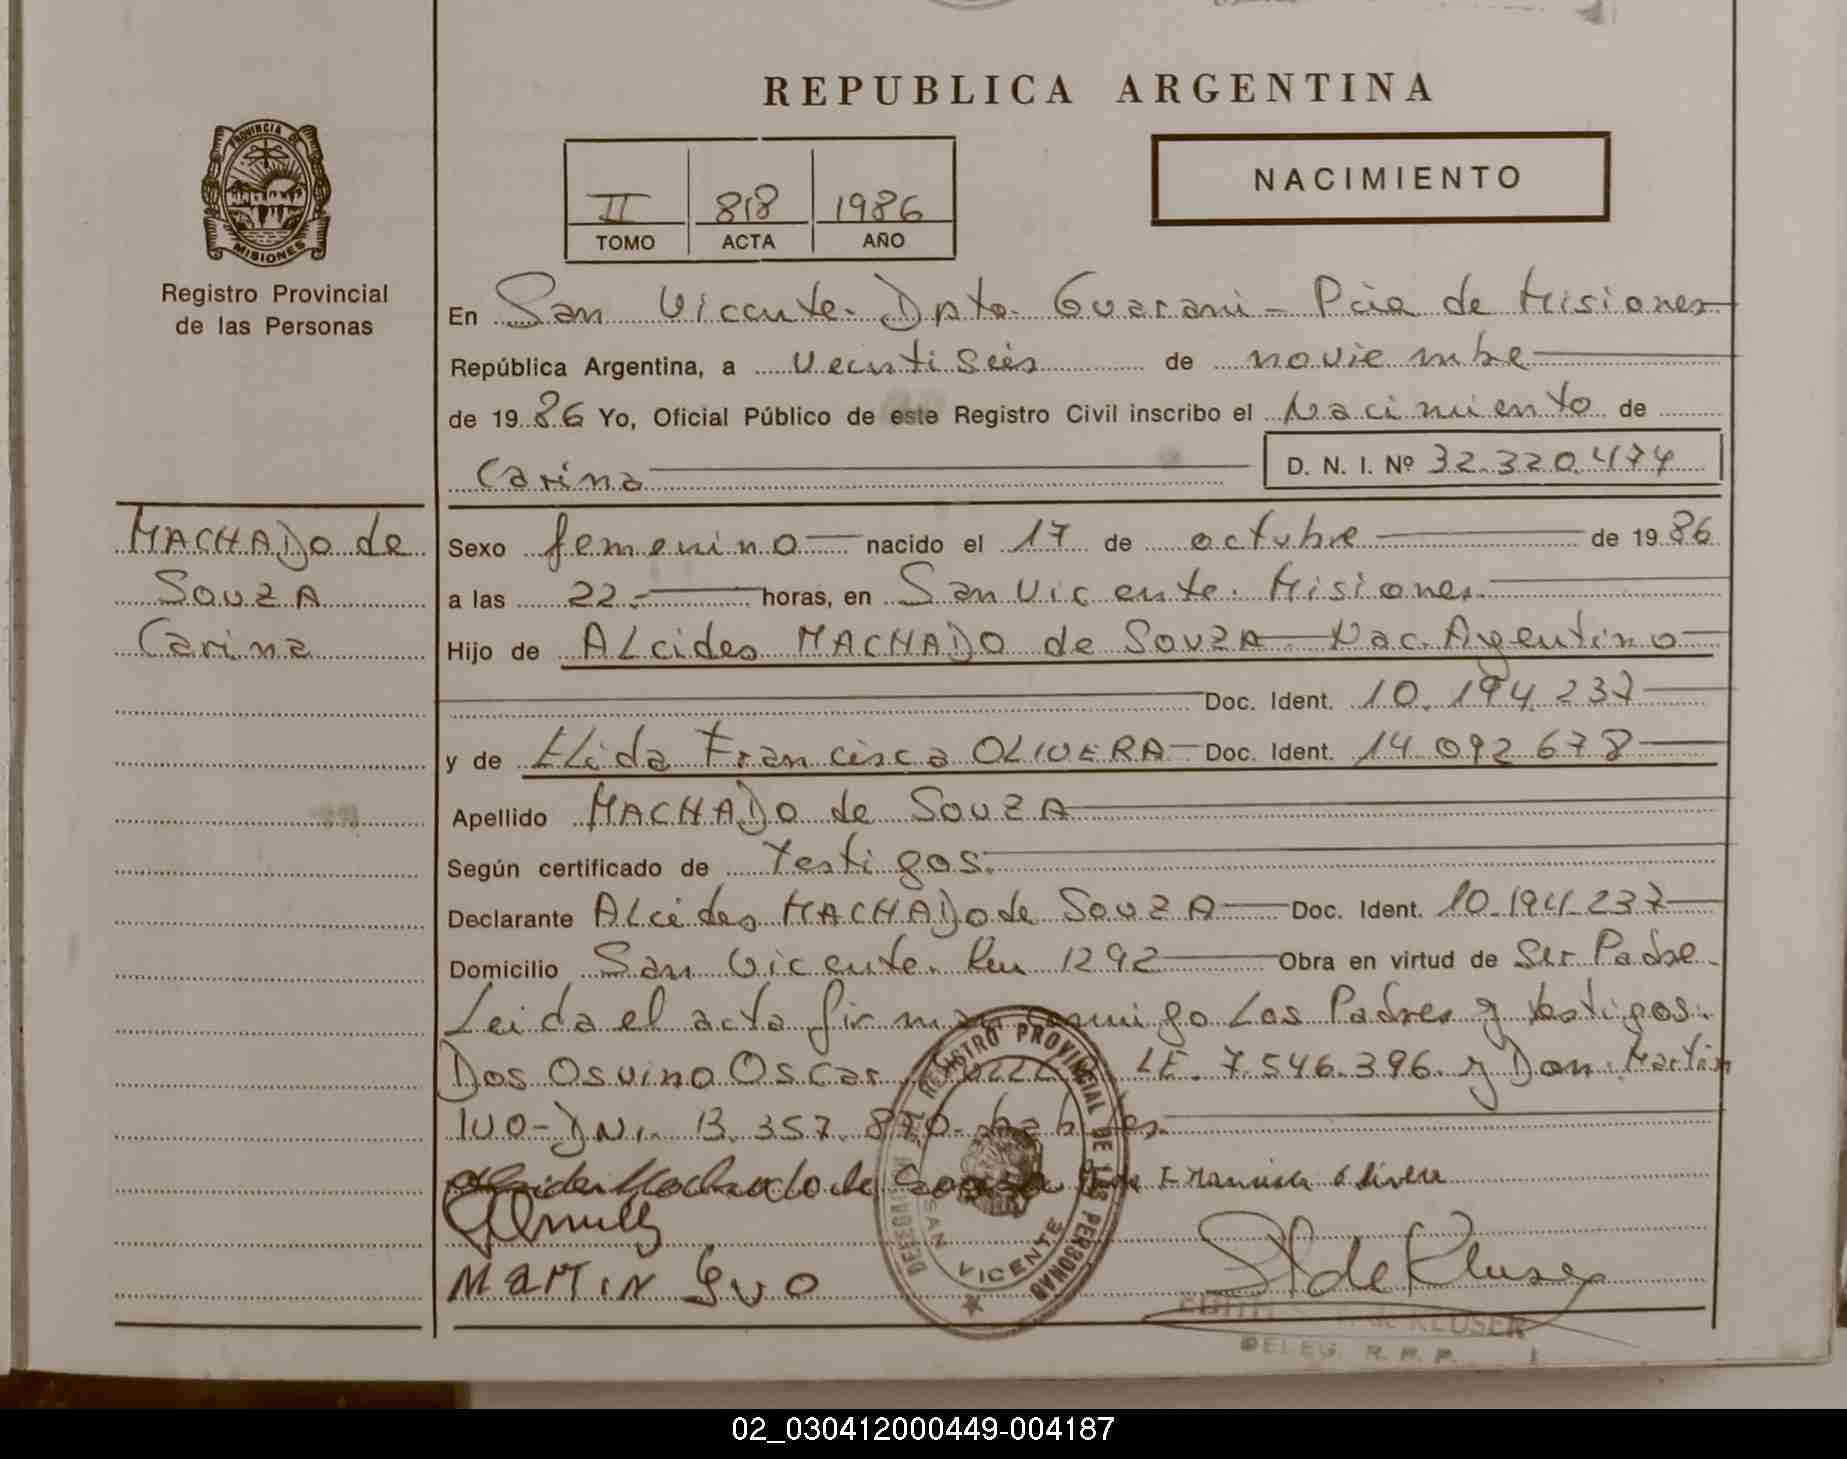 REPUBLICA ARGENTINA
PROVINCIA DE MISIONES
Registro Provincial
de las Personas
II 818 1986
TOMO ACTA AÑO
NACIMIENTO
En San Vicente. Dpto. Guarani - Pcia de Misiones
República Argentina, a veintiseis de noviembre
de 1986 Yo, Oficial Público de este Registro Civil inscribo el Nacimiento de
Carina D. N. I. Nº 32.320.474
MACHADO de
SOUZA
Carina
Sexo femenino nacido el 17 de octubre de 1986
a las 22.- horas, en San Vicente. Misiones.
Hijo de ALcides MACHADO de SOUZA Nac. Argentino
Doc. Ident. 10.194.237
y de ELida Francisca OLIVERA Doc. Ident. 14.092.678
Apellido MACHADO de SOUZA
Según certificado de testigos.
Declarante ALcides MACHADO de SOUZA Doc. Ident. 10.194.237
Domicilio San Vicente. Km 1292 Obra en virtud de Ser Padre.
Leida el acta firman conmigo Los Padres y testigos.
Dos Osvino Oscar LE. 7.546.396. y Don Martin
IVO- DNI. 13.357.840. habiles.
Machado de Souza Francisca Olivera
MARTIN Ivo
DELEGACION DEL REGISTRO PROVINCIAL DE LAS PERSONAS
SAN VICENTE
de KLUSER
DELEG. R. P. P.
02_030412000449-004187